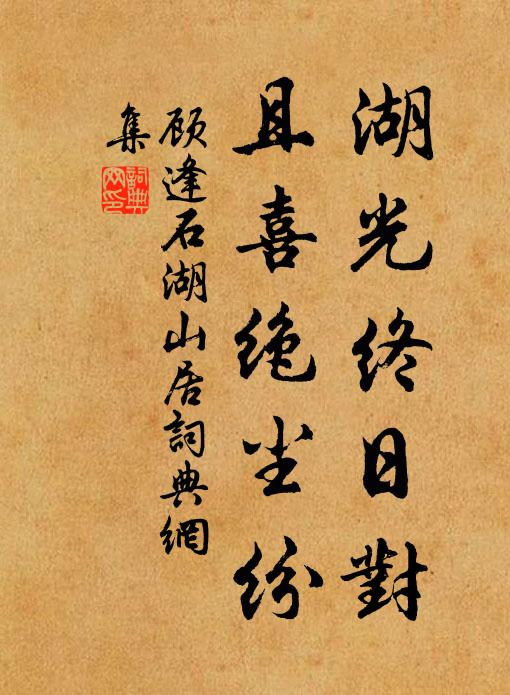 湖光终日對
且喜绝尘纷
顾逢石湖山居詞典網
集
詞典網印